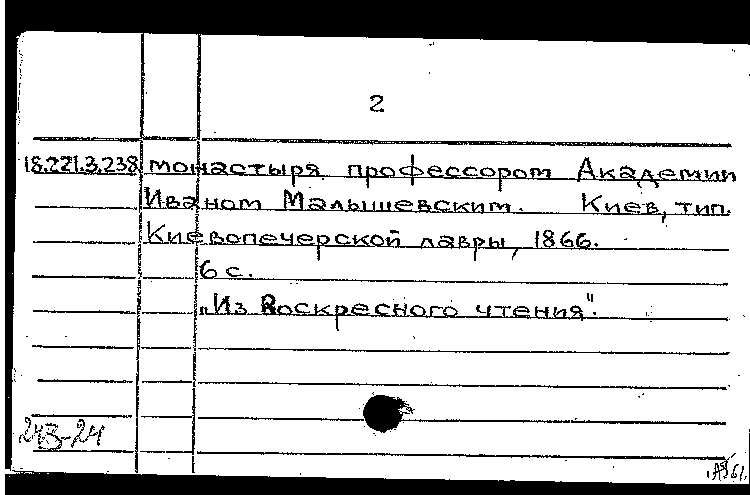 2
18.221.3.238 монастыря профессором Академии
Иваном Малышевским. Киев, тип.
Киевопечерской лавры, 1866.
6 с.
„Из Воскресного чтения".
243-24